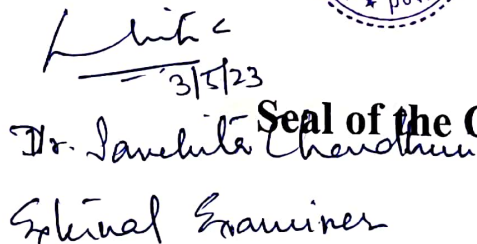 3/5/23
Seal of the C
Dr. Sanchita Chaudhuri
External Examiner